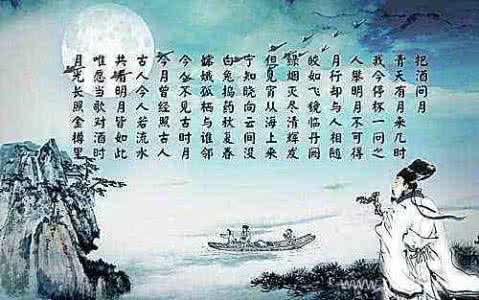 把酒问月
青天有月来几时
我今停杯一问之
人攀明月不可得
月行却与人相随
皎如飞镜临丹阙
绿烟灭尽清辉发
但见宵从海上来
宁知晓向云间没
白兔捣药秋复春
嫦娥孤栖与谁邻
今人不见古时月
今月曾经照古人
古人今人若流水
共看明月皆如此
唯愿当歌对酒时
月光长照金樽里